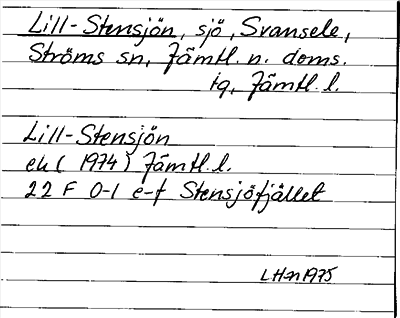 Lill-Stensjön, sjö, Svansele,
Ströms sn, Jämtl. n. doms.
tg, Jämtl. l.
Lill-Stensjön
ek (1974) Jämtl. l.
22 F 0-1 e-f Stensjöfjället
LHn 1975